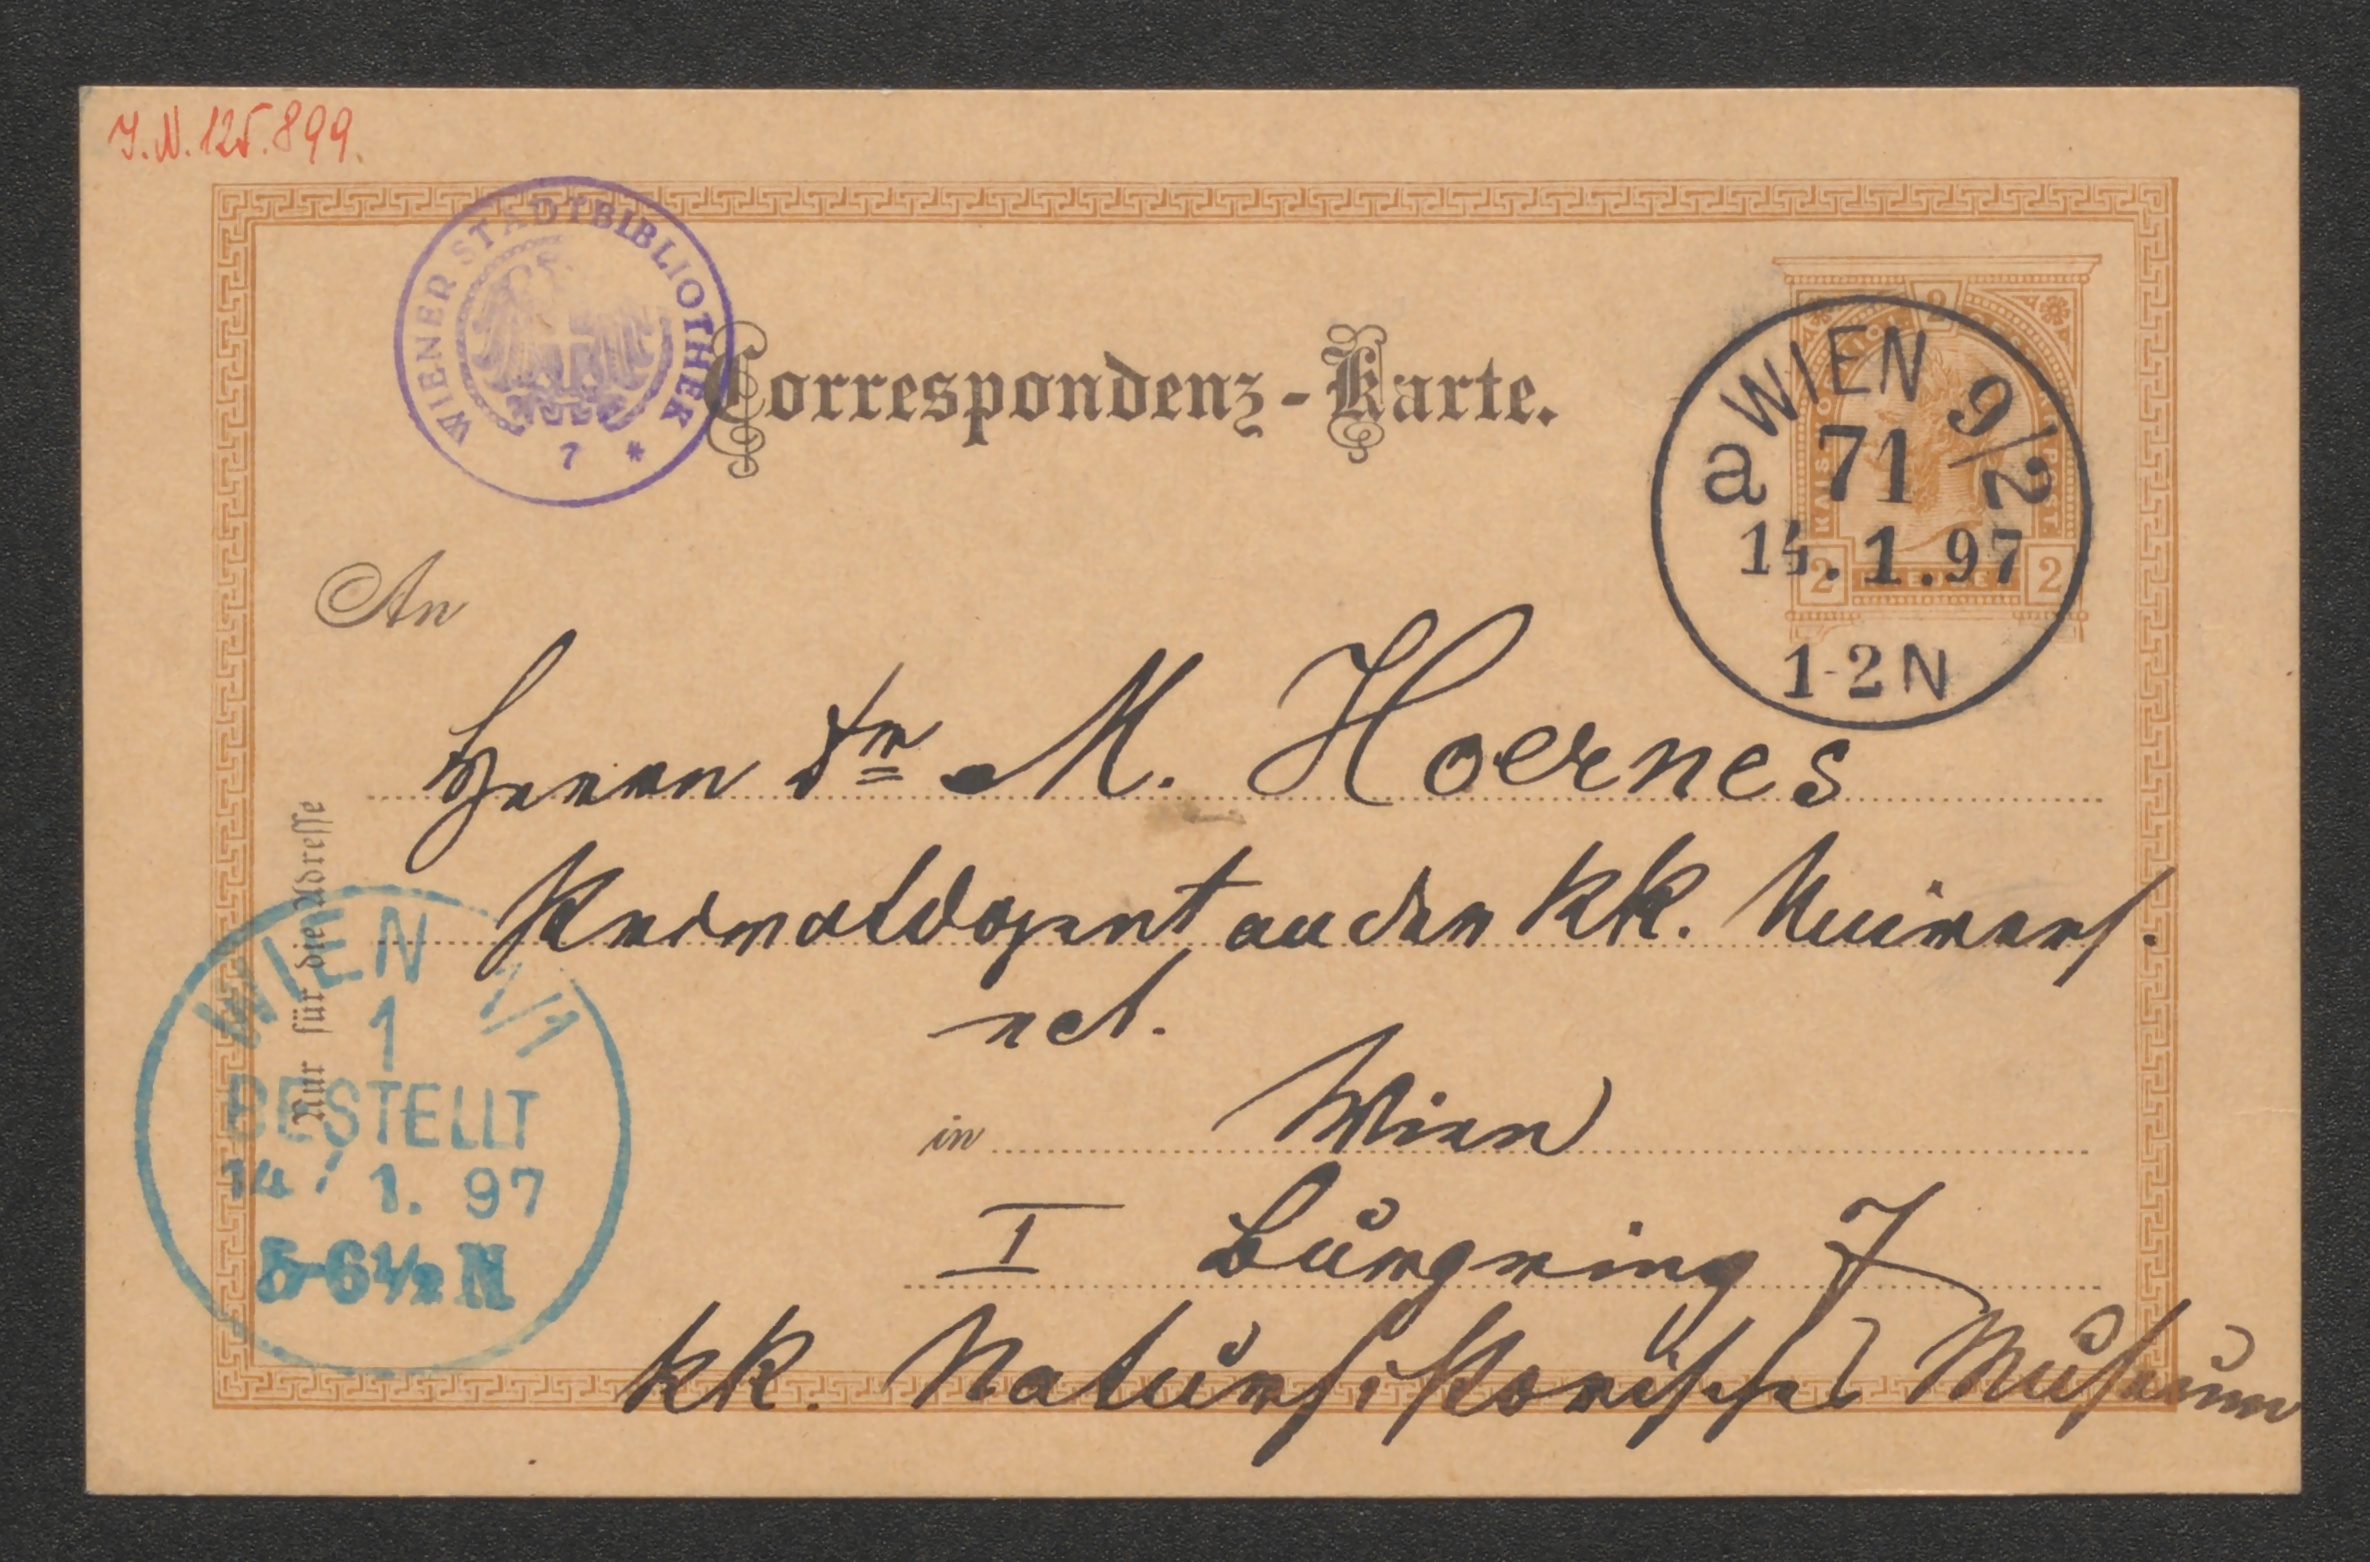 J.N. 125.899.
WIENER STADTBIBLIOTHEK
7 *
Correspondenz-Karte.
WIEN 9/2
a 71
14.1.97
1-2N
2
2 2
An
Herrn Dr M. Hoernes
Privatdozent an der kk. Univers.
ect.
in Wien
I Burgring 7
kk. Naturhistorisches Museum
Nur für die Adresse
WIEN 1/1
1
BESTELLT
14. 1. 97
5-6½N